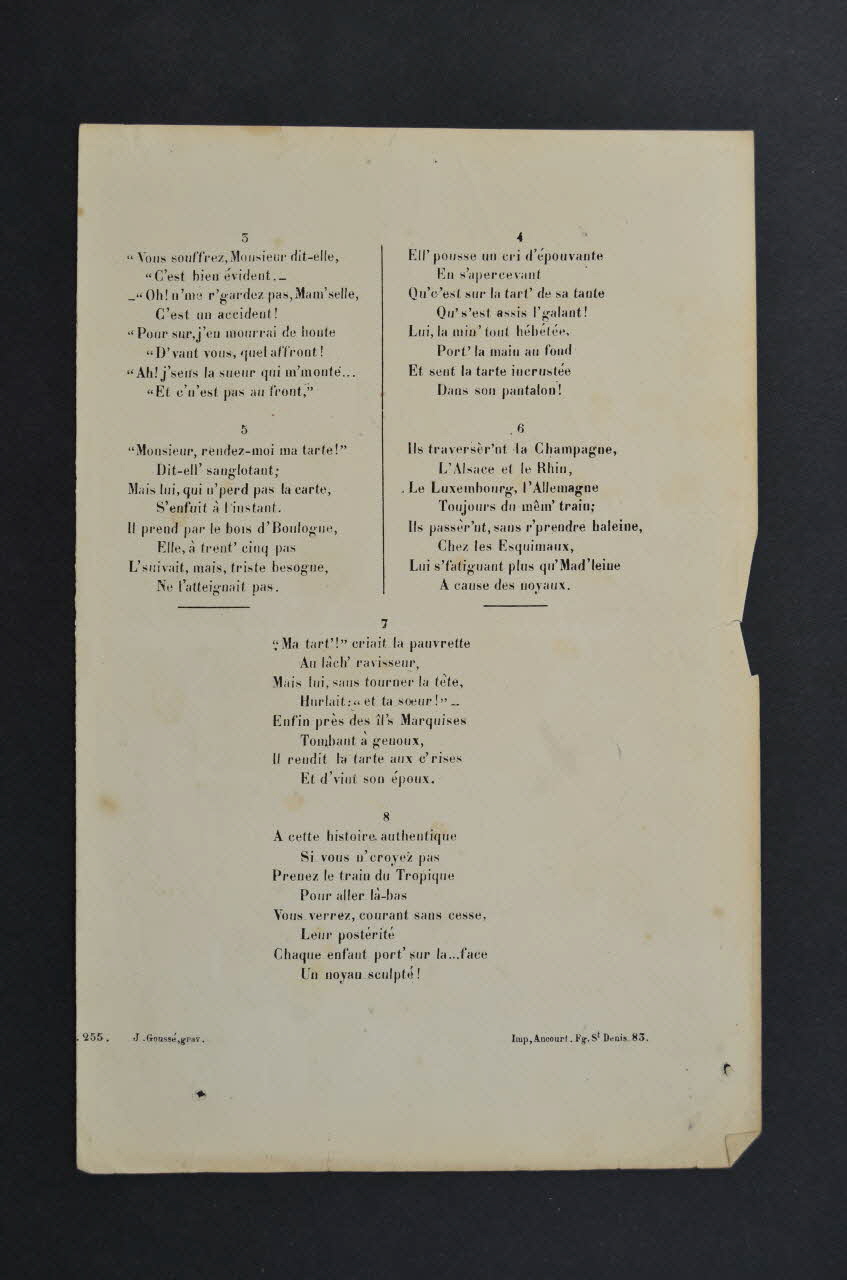 3
“ Vous souffrez, Monsieur dit-elle,
“ C'est bien évident. _
_ “ Oh! n'me r'gardez pas, Mam'selle,
C'est un accident!
“ Pour sur, j'en mourrai de honte
“ D'vant vous, quel affront!
“ Ah! j'sens la sueur qui m'monte...
“ Et c'n'est pas au front,”
4
Ell' pousse un cri d'épouvante
En s'apercevant
Qu'c'est sur la tart' de sa tante
Qu's'est assis l'galant!
Lui, la min' tout hébétée,
Port' la main au fond
Et sent la tarte incrustée
Dans son pantalon!
5
“Monsieur, rendez-moi ma tarte!”
Dit-ell' sanglotant;
Mais lui, qui n'perd pas la carte,
S'enfuit à l'instant.
Il prend par le bois d'Boulogne,
Elle, à trent' cinq pas
L'suivait, mais, triste besogne,
Ne l'atteignait pas.
6
Ils traversèr'nt la Champagne,
L'Alsace et le Rhin,
Le Luxembourg, l'Allemagne
Toujours du mêm' train;
Ils passèr'nt, sans r'prendre haleine,
Chez les Esquimaux,
Lui s'fatiguant plus qu'Mad'leine
A cause des noyaux.
7
“Ma tart'!” criait la pauvrette
Au lâch' ravisseur,
Mais lui, sans tourner la tête,
Hurlait: “ et ta sœur!” _
Enfin près des îl's Marquises
Tombant à genoux,
Il rendit la tarte aux c'rises
Et d'vint son époux.
8
A cette histoire authentique
Si vous n'croyez pas
Prenez le train du Tropique
Pour aller là-bas
Vous verrez, courant sans cesse,
Leur postérité
Chaque enfant port' sur la...face
Un noyau sculpté!
. 255. J. Goussé, grav. Imp, Ancourt. Fg. St Denis. 83.